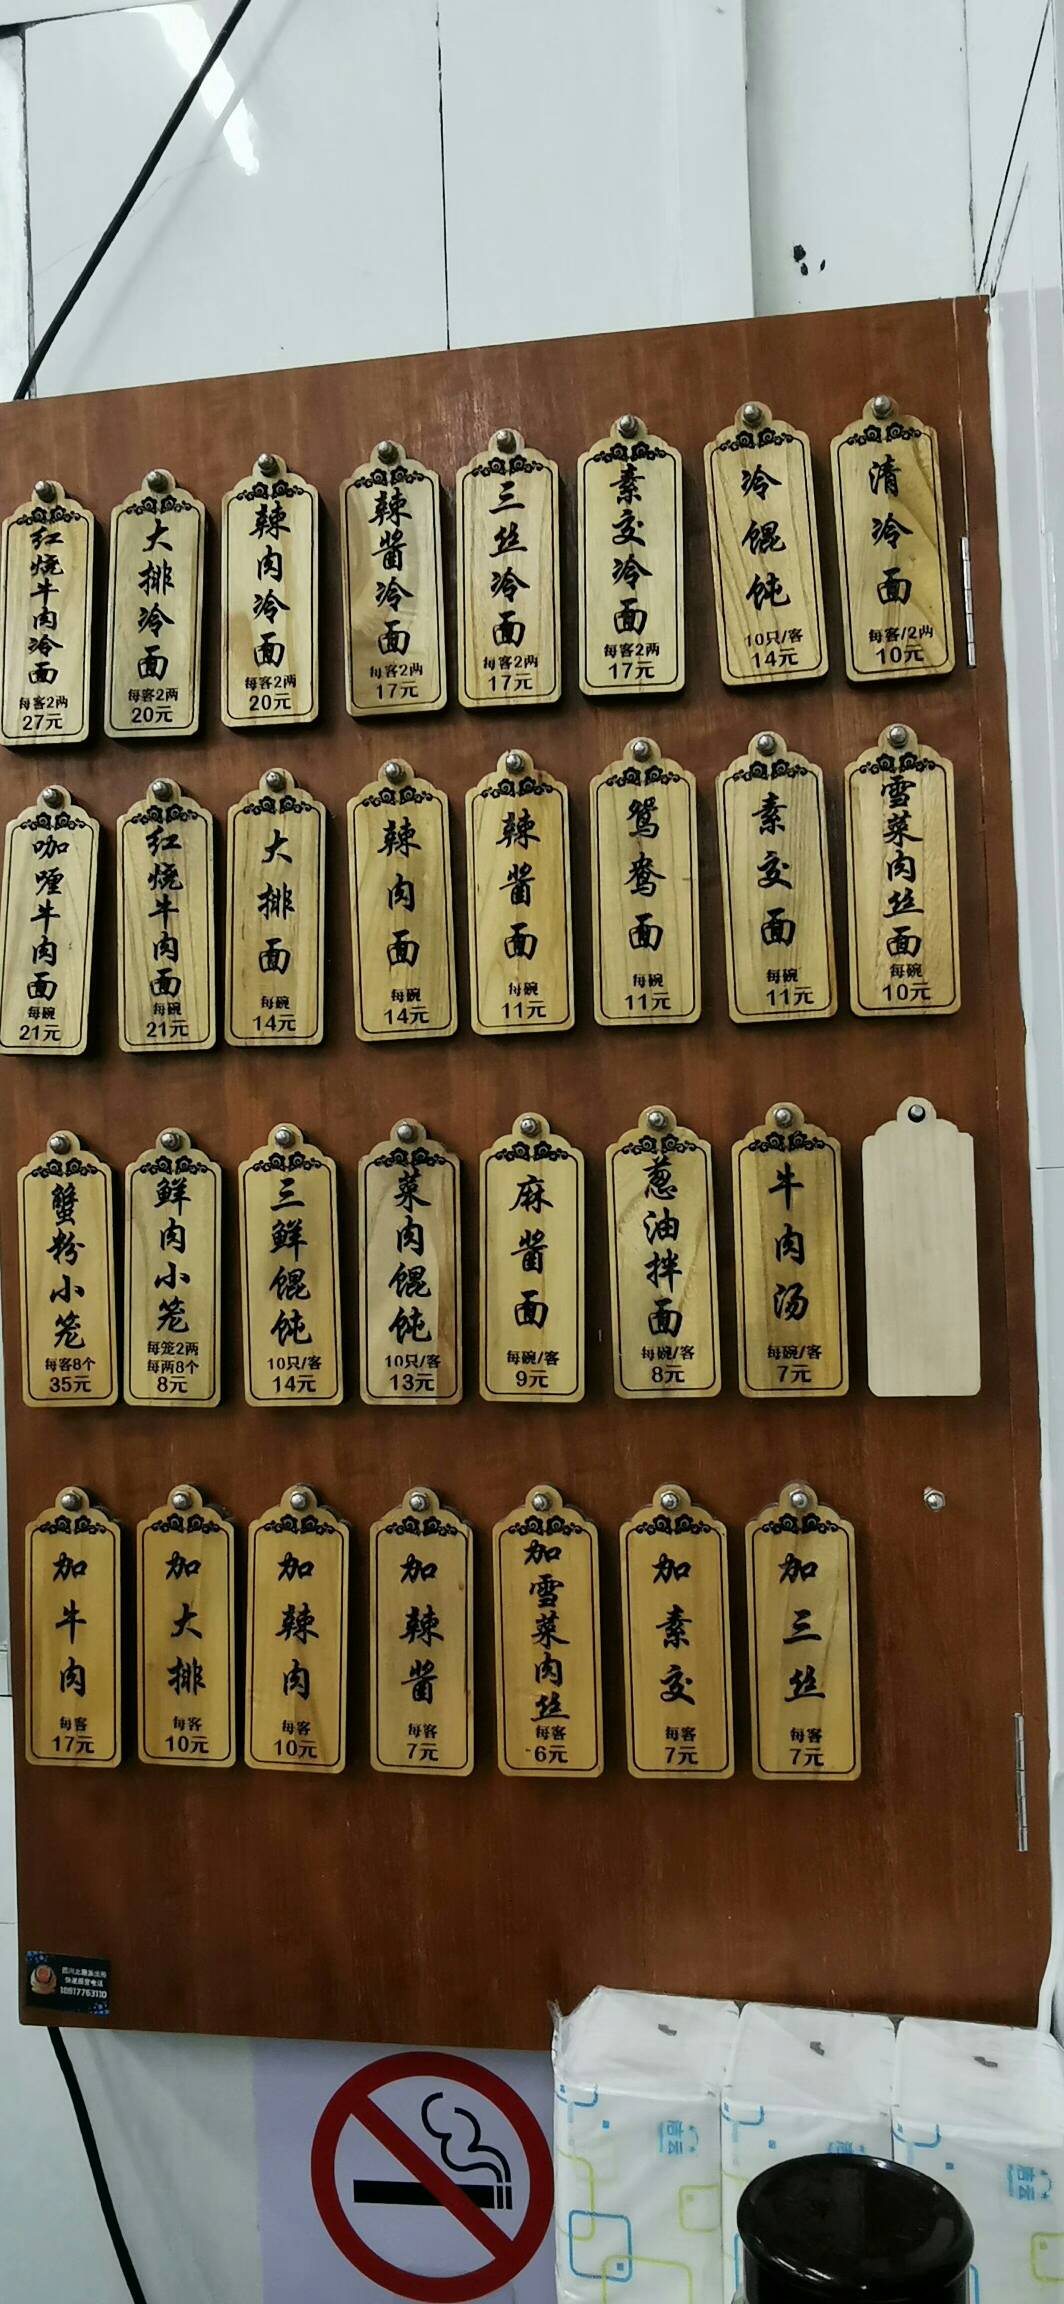 红烧牛肉冷面
每客2两
27元
大排冷面
每客2两
20元
辣肉冷面
每客2两
20元
辣酱冷面
每客2两
17元
三丝冷面
每客2两
17元
素交冷面
每客2两
17元
冷馄饨
10只/客
14元
清冷面
每客/2两
10元
咖喱牛肉面
每碗
21元
红烧牛肉面
每碗
21元
大排面
每碗
14元
辣肉面
每碗
14元
辣酱面
每碗
11元
鸳鸯面
每碗
11元
素交面
每碗
11元
雪菜肉丝面
每碗
10元
蟹粉小笼
每客8个
35元
鲜肉小笼
每笼2两
每两8个
8元
三鲜馄饨
10只/客
14元
菜肉馄饨
10只/客
13元
麻酱面
每碗/客
9元
葱油拌面
每碗/客
8元
牛肉汤
每碗/客
7元
加牛肉
每客
17元
加大排
每客
10元
加辣肉
每客
10元
加辣酱
每客
7元
加雪菜肉丝
每客
6元
加素交
每客
7元
加三丝
每客
7元